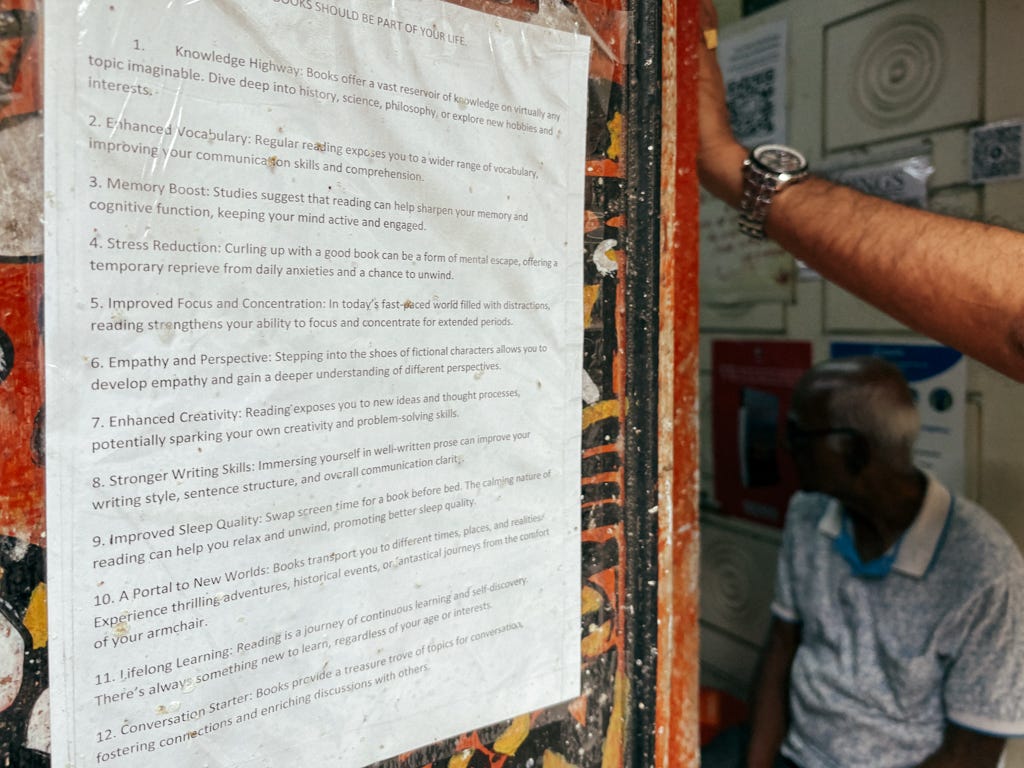 BOOKS SHOULD BE PART OF YOUR LIFE.
1. Knowledge Highway: Books offer a vast reservoir of knowledge on virtually any
topic imaginable. Dive deep into history, science, philosophy, or explore new hobbies and
interests.
2. Enhanced Vocabulary: Regular reading exposes you to a wider range of vocabulary,
improving your communication skills and comprehension.
3. Memory Boost: Studies suggest that reading can help sharpen your memory and
cognitive function, keeping your mind active and engaged.
4. Stress Reduction: Curling up with a good book can be a form of mental escape, offering a
temporary reprieve from daily anxieties and a chance to unwind.
5. Improved Focus and Concentration: In today's fast-paced world filled with distractions,
reading strengthens your ability to focus and concentrate for extended periods.
6. Empathy and Perspective: Stepping into the shoes of fictional characters allows you to
develop empathy and gain a deeper understanding of different perspectives.
7. Enhanced Creativity: Reading exposes you to new ideas and thought processes,
potentially sparking your own creativity and problem-solving skills.
8. Stronger Writing Skills: Immersing yourself in well-written prose can improve your
writing style, sentence structure, and overall communication clarity.
9. Improved Sleep Quality: Swap screen time for a book before bed. The calming nature of
reading can help you relax and unwind, promoting better sleep quality.
10. A Portal to New Worlds: Books transport you to different times, places, and realities.
Experience thrilling adventures, historical events, or fantastical journeys from the comfort
of your armchair.
11. Lifelong Learning: Reading is a journey of continuous learning and self-discovery.
There's always something new to learn, regardless of your age or interests.
12. Conversation Starter: Books provide a treasure trove of topics for conversation,
fostering connections and enriching discussions with others.